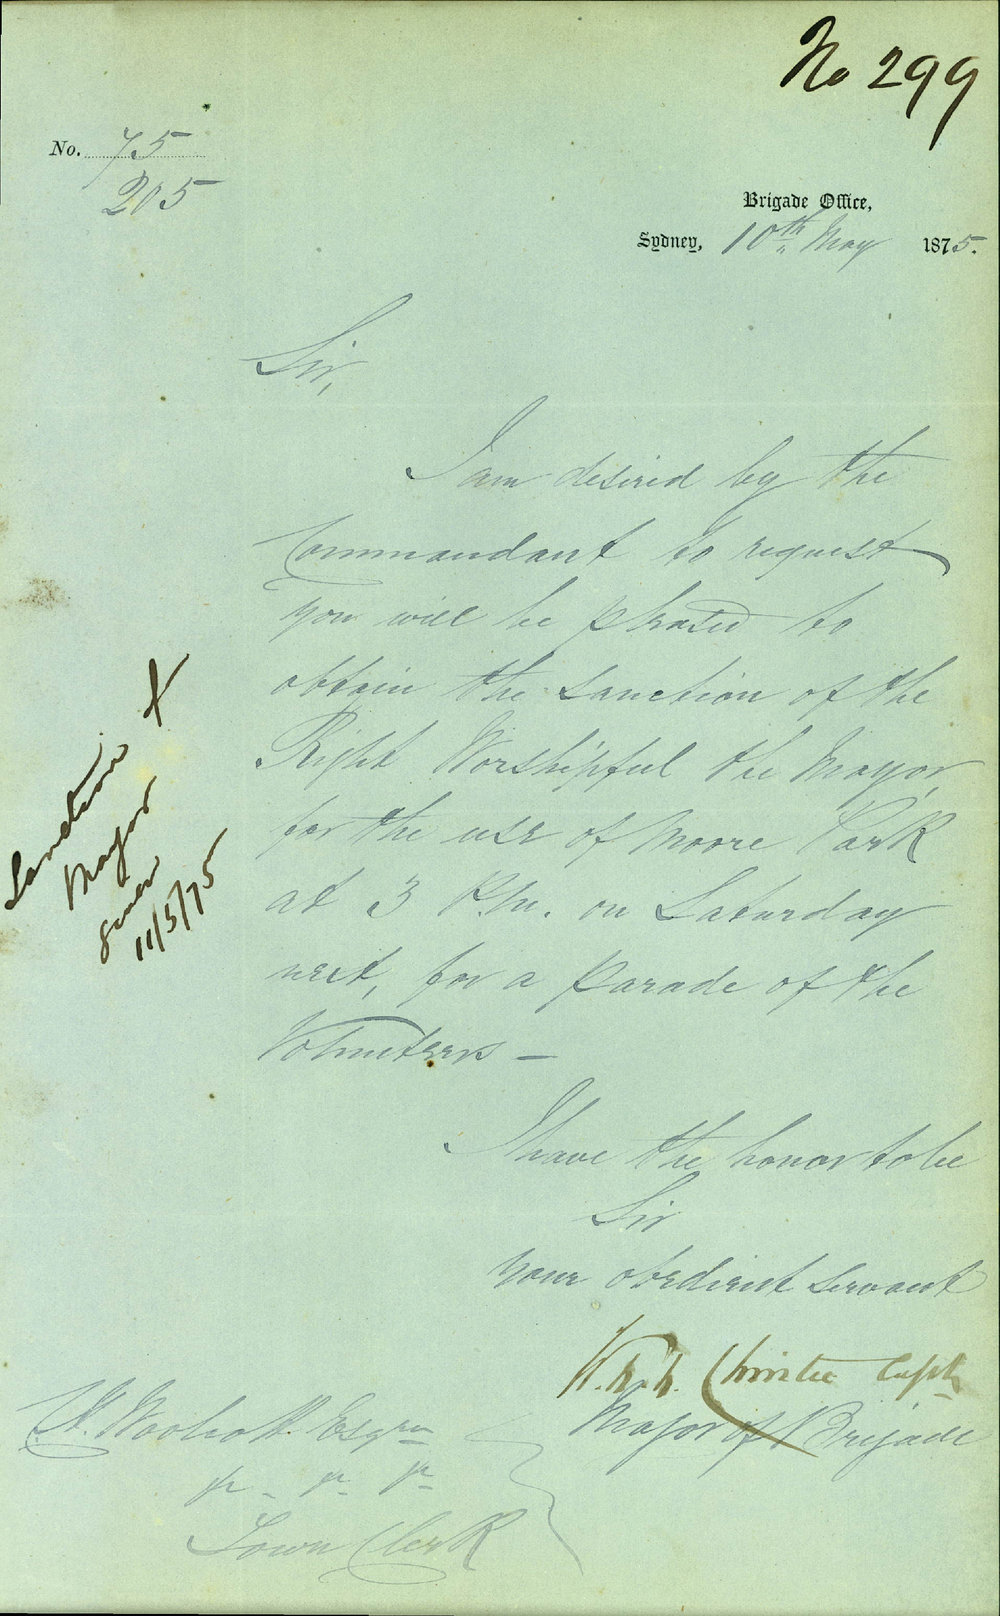 No 299
No. 75
205
Brigade Office,
Sydney, 10th May 1875.
Sir,
I am desired by the
Commandant to request
you will be pleased to
obtain the sanction of the
Right Worshipful the Mayor
for the use of Moore Park
at 3 P.M. on Saturday
next, for a parade of the
Volunteers –
Sanction
Mayor
11/5/75
I have the honor to be
Sir
Your obedient servant
Christie Captn
Major of Brigade
C. H. Woolcott Esqre
Town Clerk